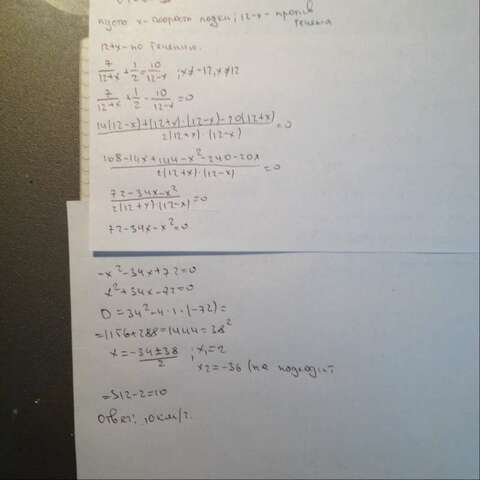 пусть x - скорость лодки; 12-x - против течения
12+x - по течению.
7/(12+x) + 1/2 = 10/(12-x) ; x≠-12, x≠12
7/(12+x) + 1/2 - 10/(12-x) = 0
(14(12-x)+(12+x)·(12-x)-20(12+x))/(2(12+x)·(12-x)) = 0
(168-14x+144-x²-240-20x)/(2(12+x)·(12-x)) = 0
(72-34x-x²)/(2(12+x)·(12-x)) = 0
72-34x-x²=0
-x²-34x+72=0
x²+34x-72=0
D=34²-4·1·(-72)=
=1156+288=1444=38²
x=(-34±38)/2 ; x₁=2
x₂=-36 (не подходит
=>12-2=10
Ответ: 10км/ч.